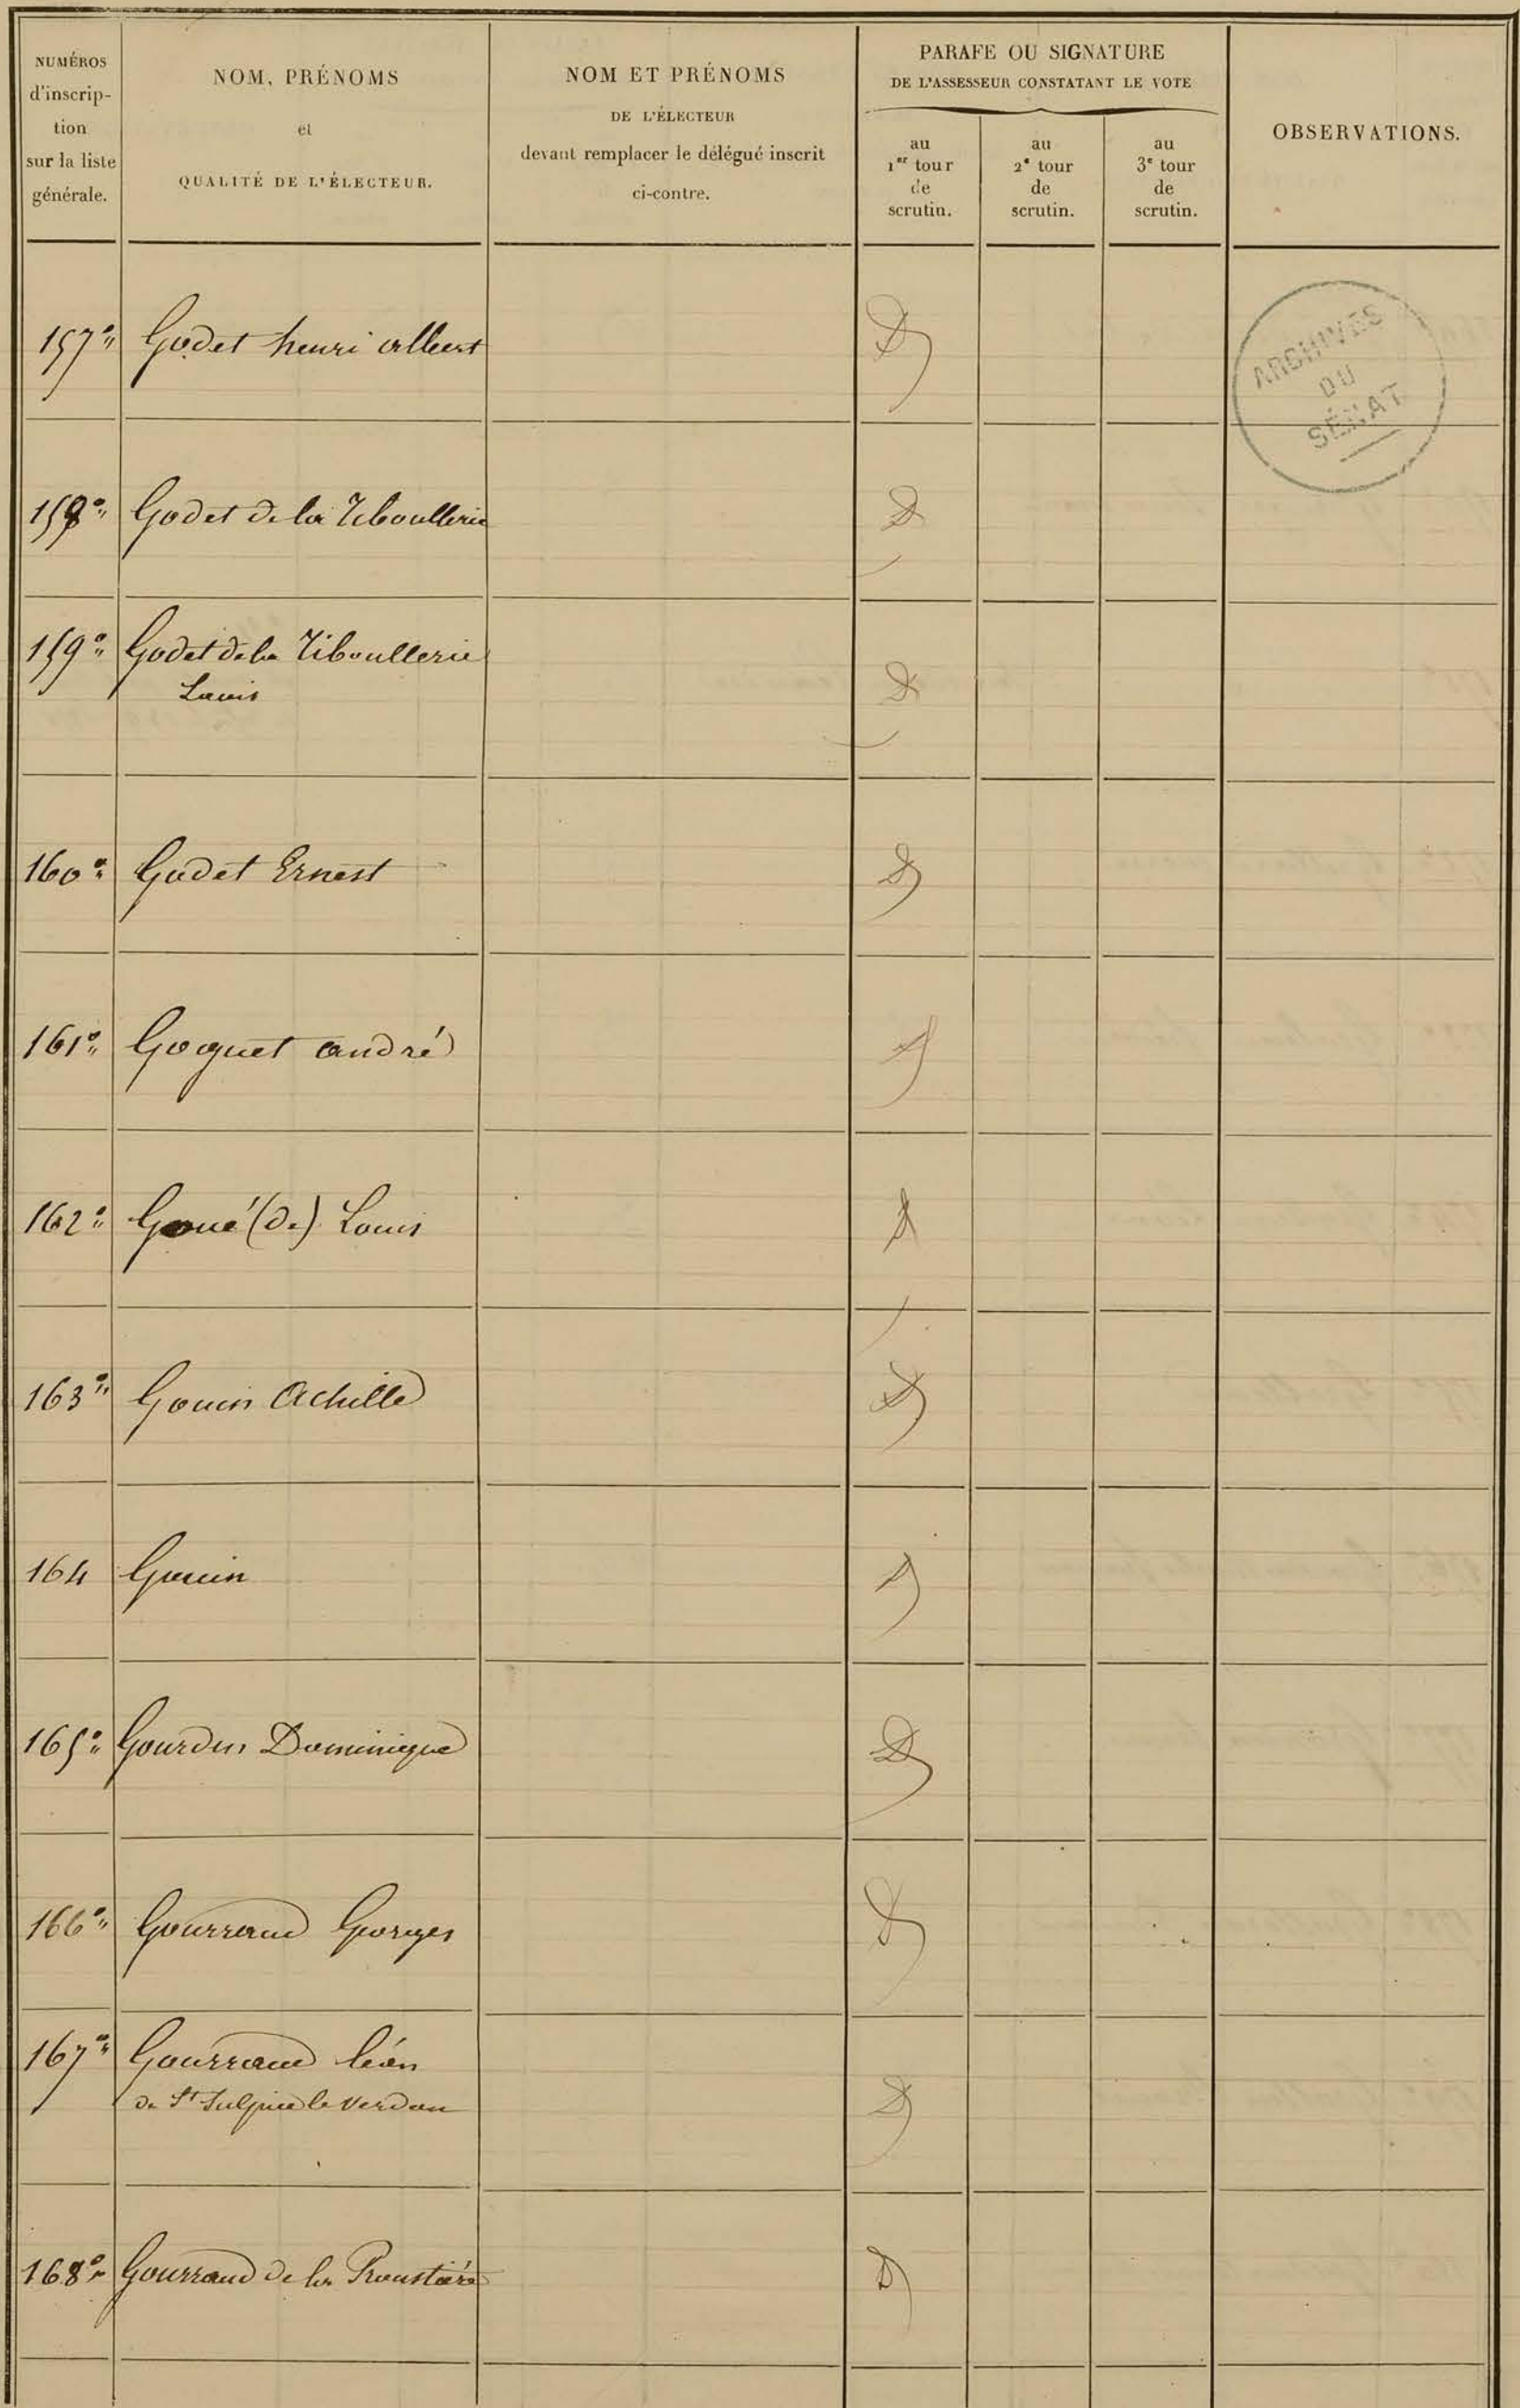 NUMÉROS
d'inscrip-
tion
sur la liste
générale.
NOM, PRÉNOMS
et
QUALITÉ DE L'ÉLECTEUR.
NOM ET PRÉNOMS
DE L'ÉLECTEUR
devant remplacer le délégué inscrit
ci-contre.
PARAFE OU SIGNATURE
DE L'ASSESSEUR CONSTATANT LE VOTE
au
1er tour
de
scrutin.
au
2e tour
de
scrutin.
au
3e tour
de
scrutin.
OBSERVATIONS.
ARCHIVES
DU
SÉNAT
157° Godet henri albert
158° Godet de la Tiboullerie
159° Godet de la Tiboullerie
Louis
160° Godet Ernest
161° Goguet andré
162° Goué (de) Louis
163° Gouin Achille
164 Gouin
165° Gourdin Dominique
166° Gourraud Georges
167° Gourraud léon
de St Sulpice le Verdon
168° Gourraud de la Proustière